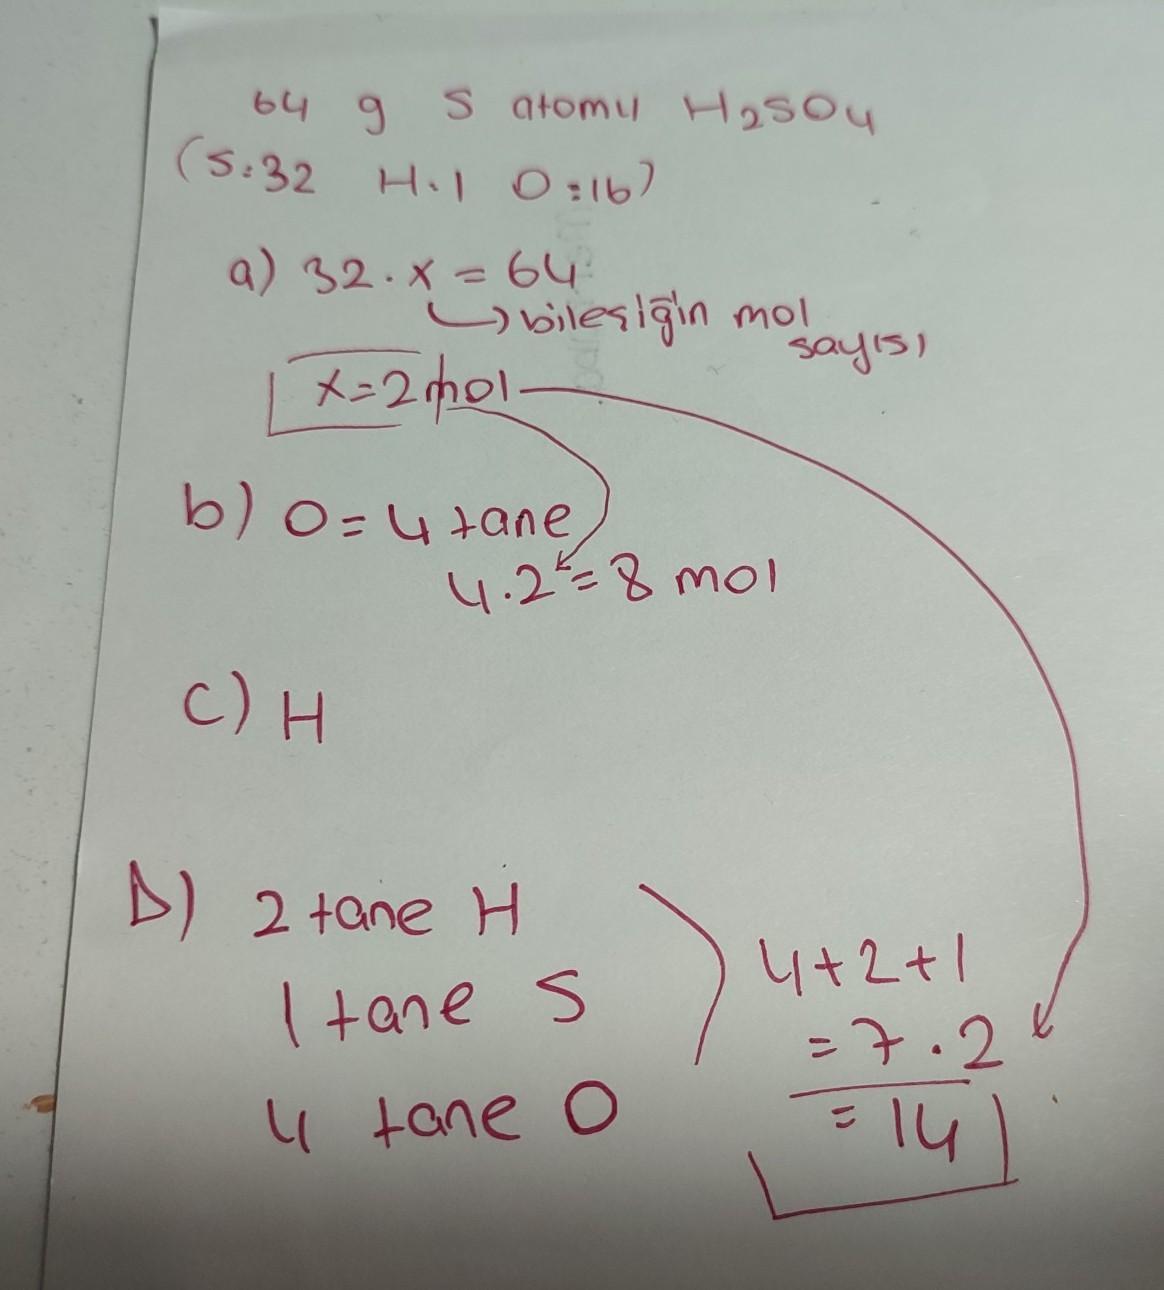 64 g S atomu H₂SO₄
(S:32 H.1 O:16)
a) 32.x = 64
bileşiğin mol
sayısı
x=2mol
b) O=4 tane
4.2=8 mol
c) H
D) 2 tane H
1 tane S
4 tane O
4+2+1
=7.2
=14